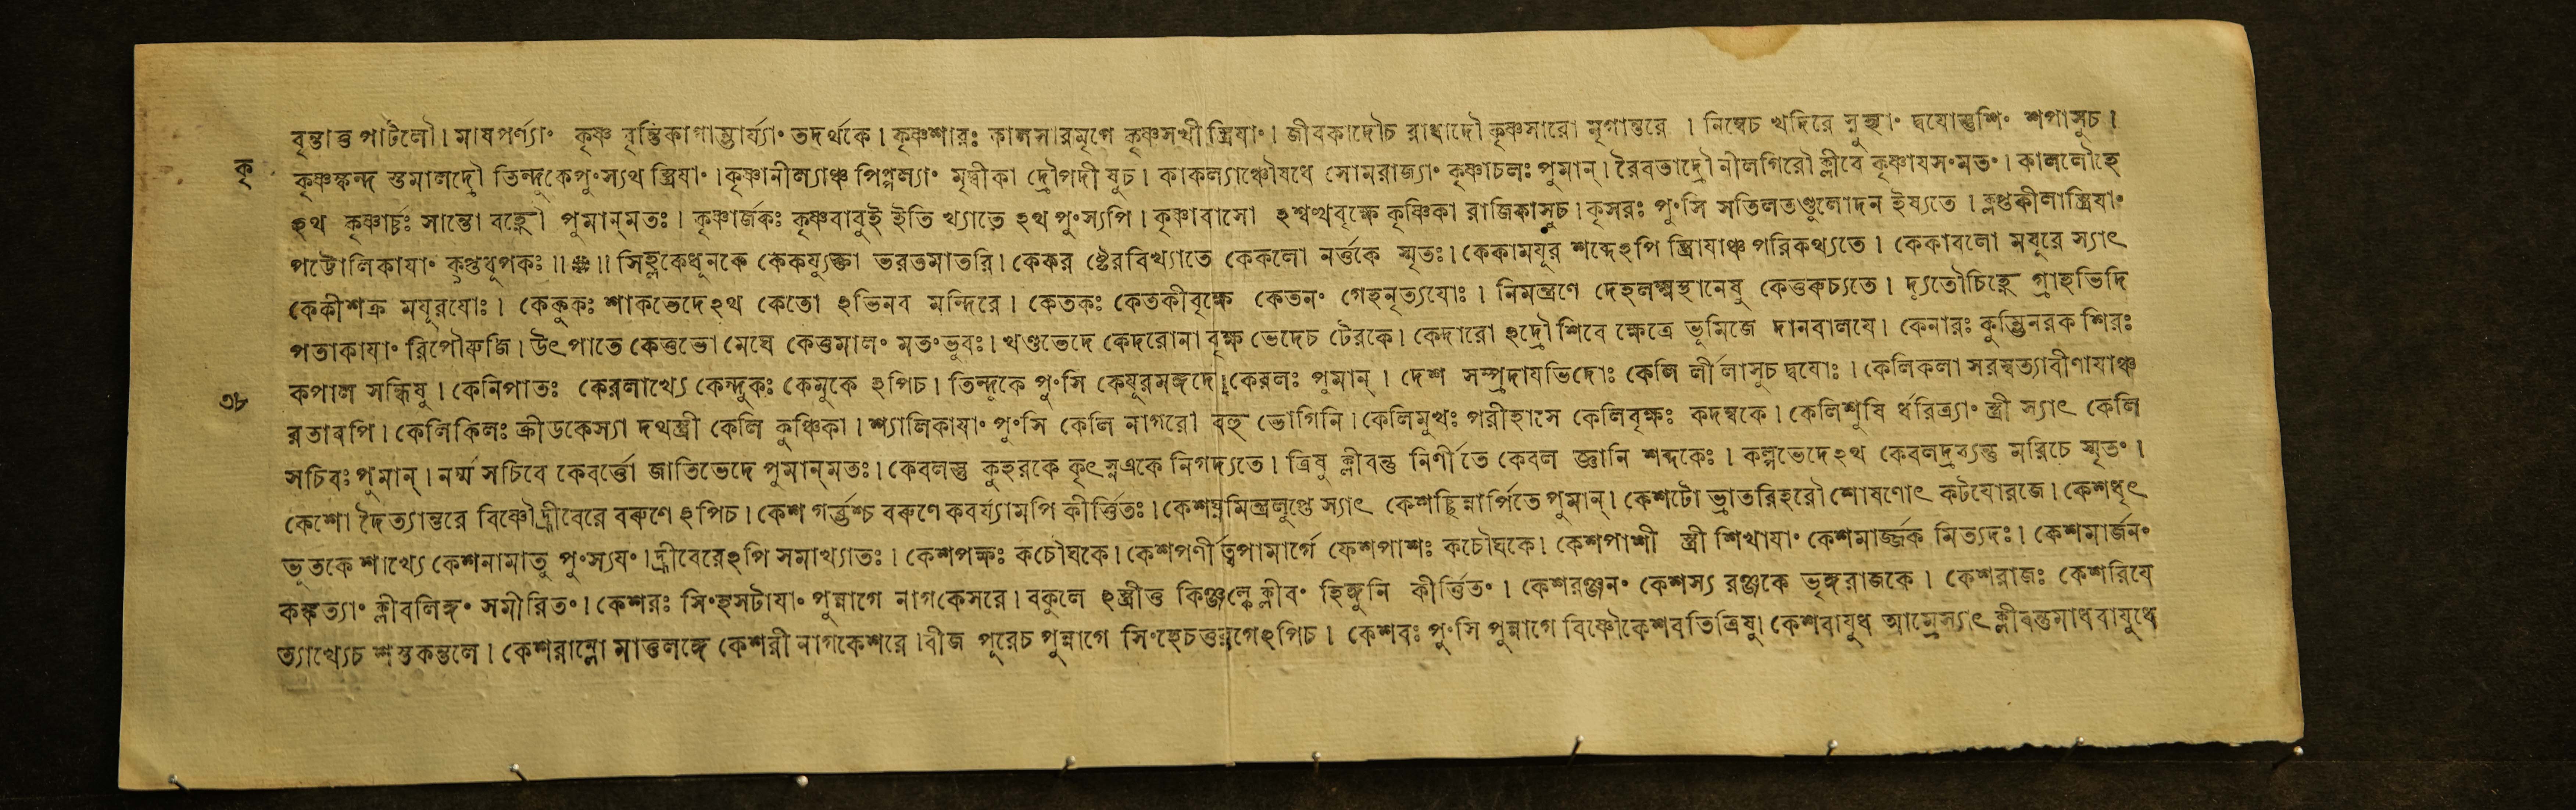 বৃন্তাত্তু পাটলৌ। মাষপর্ণ্যাং কৃষ্ণ বৃন্তিকাগাম্ভার্য্যাং তদর্থকে। কৃষ্ণশারঃ কালসারমৃগে কৃষ্ণসখী স্ত্রিযাং। জীবকাদৌচ রাধাদৌ কৃষ্ণসারো মৃগান্তরে । নিম্বেচ খদিরে স্নুহ্যাং দ্বযোস্তুশিং শপাসুচ।
কৃ
কৃষ্ণস্কন্দ স্তমালদ্রৌ তিন্দুকেপুংস্যথ স্ত্রিযাং। কৃষ্ণানীল্যাঞ্চ পিপ্পল্যাং মৃদ্বীকা দ্রৌপদী যুচ। কাকল্যাঞ্চৌষধে সোমরাজ্যাং কৃষ্ণাচলঃ পুমান্। রৈবতাদ্রৌ নীলগিরৌ ক্লীবে কৃষ্ণাযসংমতং। কাললৌহে
ঽথ কৃষ্ণার্চ্চঃ সান্তো বহ্নৌ পুমান্মতঃ। কৃষ্ণার্জকঃ কৃষ্ণবাবুই ইতি খ্যাতে ঽথ পুংস্যপি। কৃষ্ণাবাসো ঽশ্বত্থবৃক্ষে কৃষ্ণিকা রাজিকাসুচ। কৃসরঃ পুংসি সতিলতণ্ডুলোদন ইষ্যতে । ক্লপ্তকীলাস্ত্রিযাং
পট্টোলিকাযাং ক্লপ্তধূপকঃ ॥ ॥ সিহ্লকেধূনকে কেকয্যুক্তা ভরতমাতরি। কেকর ষ্টেরবিখ্যাতে কেকলো নর্ত্তকে স্মৃতঃ। কেকামযূর শব্দেঽপি স্ত্রিযাঞ্চ পরিকথ্যতে। কেকাবলো মযূরে স্যাৎ
কেকীশক্র মযূরযোঃ। কেকুকঃ শাকভেদেঽথ কেতো ঽভিনব মন্দিরে। কেতকঃ কেতকীবৃক্ষে কেতনং গেহনৃত্যযোঃ । নিমন্ত্রণে দেহলক্ষ্মস্থানেষু কেত্তরুচ্যতে। দ্যুতৌচিহ্নে গ্রাহভিদি
পতাকাযাং রিপৌরুজি। উৎপাতে কেত্তুভো মেঘে কেত্তুমালং মতংভুবঃ। খণ্ডভেদে কেদরোনা বৃক্ষ ভেদেচ টেরকে। কেদারো ঽদ্রৌ শিবে ক্ষেত্রে ভূমিজে দানবালযে। কেনারঃ কুম্ভিনরক শিরঃ
৩৮
কপাল সন্ধিষু। কেনিপাতঃ কেরলাখ্যে কেন্দুকঃ কেমুকে ঽপিচ। তিন্দুকে পুংসি কেযূরমঙ্গদে। কেরলঃ পুমান্। দেশ সম্প্রদাযভিদোঃ কেলি র্লীলাসুচ দ্বযোঃ । কেলিকলা সরস্বত্যাবীণাযাঞ্চ
রতাবপি। কেলিকিলঃ ক্রীডকেস্যা দথস্ত্রী কেলি কুঞ্চিকা। শ্যালিকাযাং পুংসি কেলি নাগরো বহু ভোগিনি। কেলিমুখঃ পরীহাসে কেলিবৃক্ষঃ কদম্বকে। কেলিশুষি র্ধরিত্র্যাং স্ত্রী স্যাৎ কেলি
সচিবঃ পুমান্। নর্ম্ম সচিবে কেবর্ত্তো জাতিভেদে পুমান্মতঃ। কেবলস্তু কুহরকে কৃৎস্নএকে নিগদ্যতে। ত্রিষু ক্লীবন্তু নির্ণীতে কেবল জ্ঞানি শব্দকেঃ। কল্পভেদেঽথ কেবলদ্রব্যন্তু মরিচে স্মৃতং।
কেশো দৈত্যান্তরে বিষ্ণৌহ্রীবেরে বরুণে ঽপিচ। কেশ গর্ব্ভশ্চ বরুণে কবর্য্যামপি কীর্ত্তিতঃ। কেশঘ্নমিন্দ্রলুপ্তে স্যাৎ কেশচ্ছিন্নার্পিতে পুমান্। কেশটো ভ্রাতরিহরৌ শোষণোৎ কটযোরজে। কেশধৃৎ
ভূতকে শাখ্যে কেশনামাতু পুংস্যযং। হ্রীবেরেঽপি সমাখ্যাতঃ। কেশপক্ষঃ কচৌঘকে। কেশপর্ণী ত্বপামার্গে কেশপাশঃ কচৌঘকে। কেশপাশী স্ত্রী শিখাযাং কেশমার্জ্জক মিত্যদঃ। কেশমার্জনং
কঙ্কত্যাং ক্লীবলিঙ্গং সমীরিতং। কেশরঃ সিংহসটাযাং পুন্নাগে নাগকেসরে। বকুলে ঽস্ত্রীত্ত কিঞ্জল্কে ক্লীবং হিঙ্গুনি কীর্ত্তিতং। কেশরঞ্জনং কেশস্য রঞ্জকে ভৃঙ্গরাজকে। কেশরাজঃ কেশরিবে
ত্যাখ্যেচ শস্তকন্তলে। কেশরাম্লো মাত্তলঙ্গে কেশরী নাগকেশরে। বীজ পূরেচ পুন্নাগে সিংহেচত্তরগেঽপিচ। কেশবঃ পুংসি পুন্নাগে বিষ্ণৌকেশবতিত্রিষু। কেশবাযুধ আম্রেস্যাৎ ক্লীবন্তুমাধবাযুধে